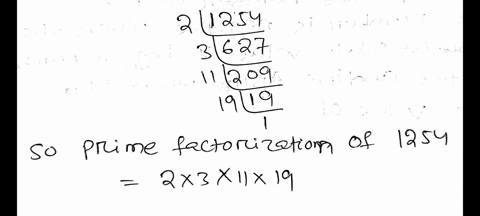 2 | 1254
3 | 627
11 | 209
19 | 19
1
so prime factorization of 1254
= 2×3×11×19